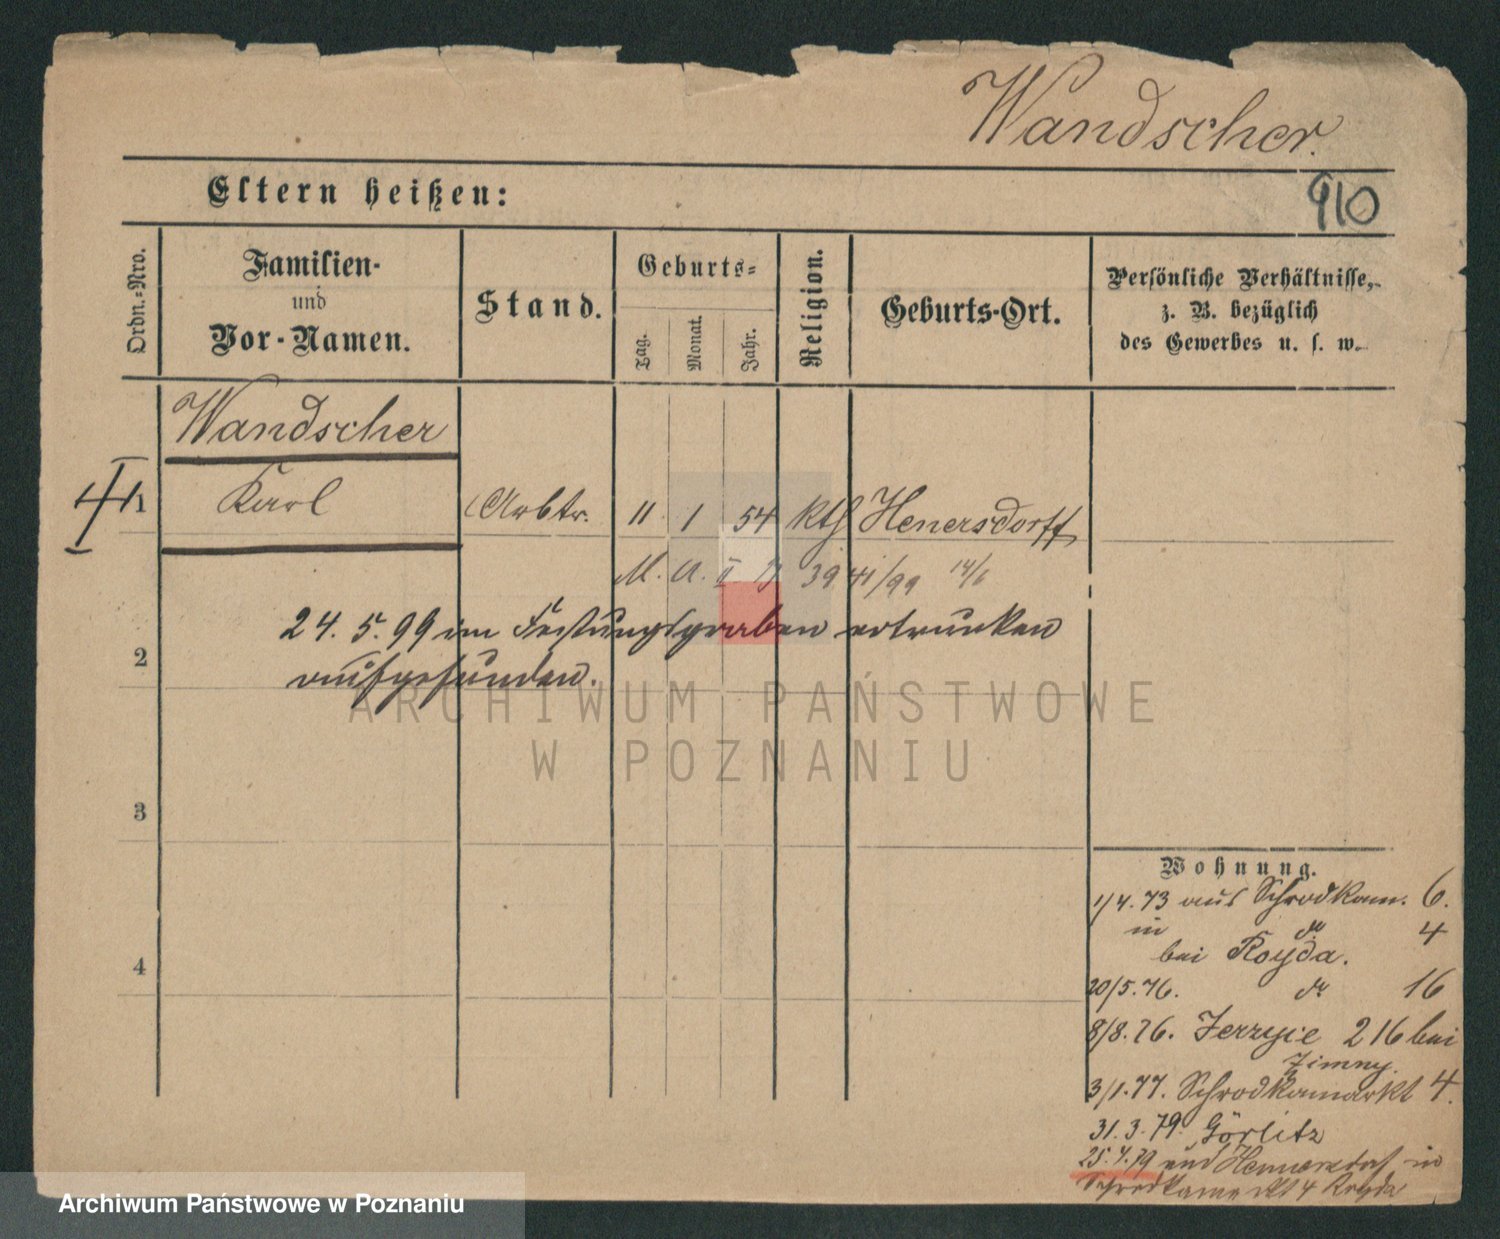 Wandscher.
Eltern heißen:
910
Ordn.-Nro.
Familien-
und
Vor-Namen.
Stand.
Geburts-
Tag.
Monat.
Jahr.
Religion.
Geburts-Ort.
Persönliche Verhältnisse,
z. B. bezüglich
des Gewerbes u. s. w.
Wandscher
1 Karl Arbtr. 11 1 54 kth Henersdorff
M. A. II 39 41/99 14/6
24. 5. 99 im Festungsgraben ertrunken
2
aufgefunden.
ARCHIWUM PAŃSTWOWE
W POZNANIU
3
4
Wohnung.
1/4.73 aus Schrodkam. 6.
in do 4
bei Royda.
20/5.76. do 16
8/8.76. Jerzyce 216 bei
Zimny.
3/1.77. Schrodkamarkt 4.
31.3.79. Görlitz
25.4.79 aus Hennersdorf in
Schrodkamarkt 4 Royda
Archiwum Państwowe w Poznaniu